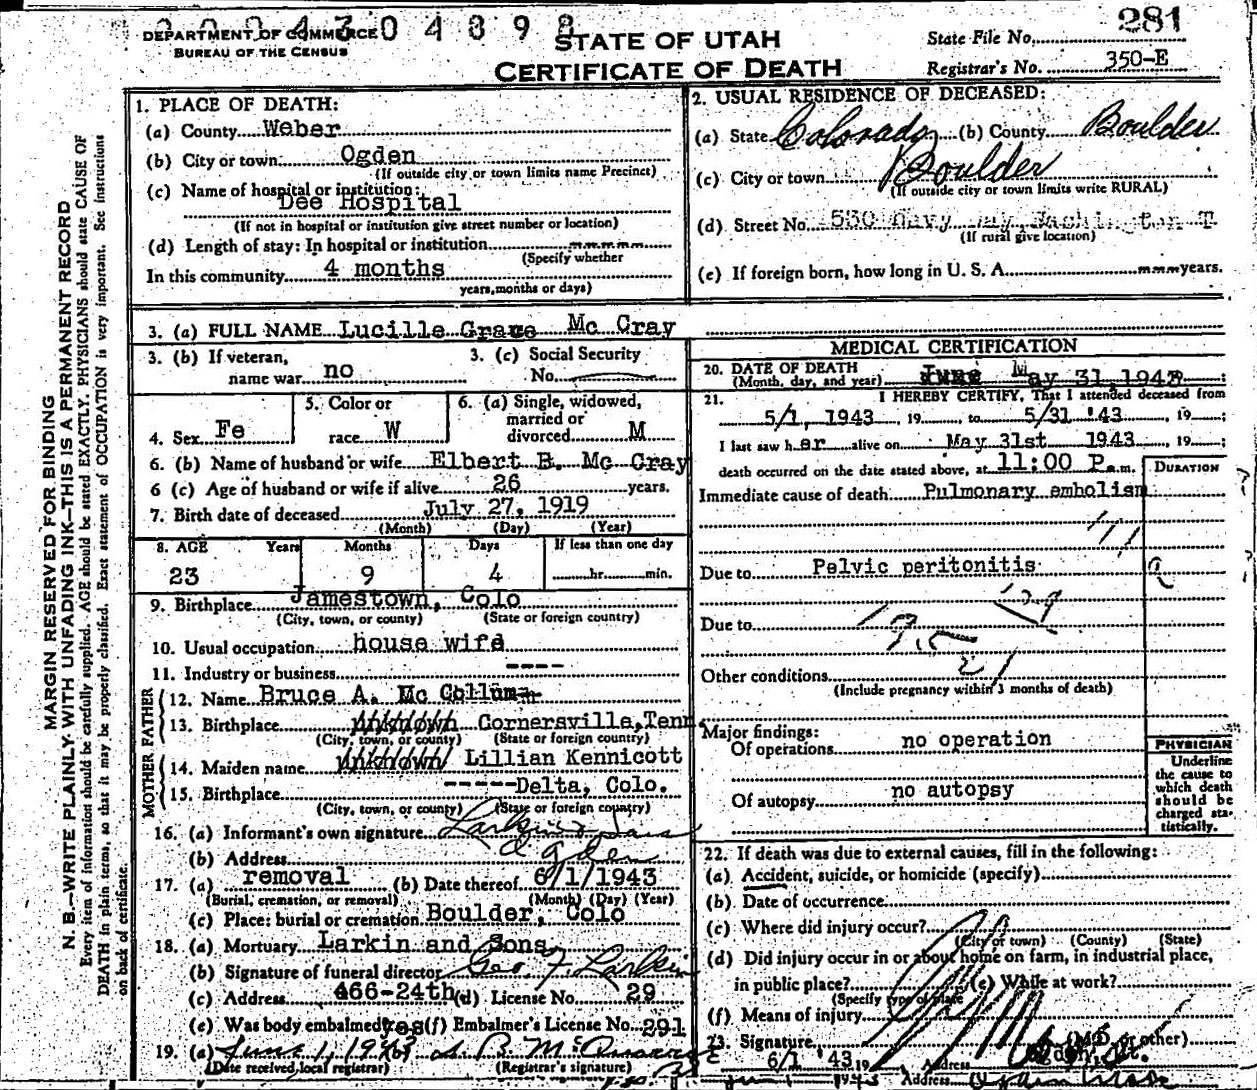 DEPARTMENT OF COMMERCE
BUREAU OF THE CENSUS
STATE OF UTAH
CERTIFICATE OF DEATH
State File No. 281
Registrar's No. 350-E
MARGIN RESERVED FOR BINDING
N. B.—WRITE PLAINLY WITH UNFADING INK—THIS IS A PERMANENT RECORD
Every item of information should be carefully supplied. AGE should be stated EXACTLY. PHYSICIANS should state CAUSE OF
DEATH in plain terms, so that it may be properly classified. Exact statement of OCCUPATION is very important. See instructions
on back of certificate.
1. PLACE OF DEATH:
(a) County Weber
(b) City or town Ogden
(If outside city or town limits name Precinct)
(c) Name of hospital or institution:
Dee Hospital
(If not in hospital or institution give street number or location)
(d) Length of stay: In hospital or institution
(Specify whether
In this community 4 months
years, months or days)
2. USUAL RESIDENCE OF DECEASED:
(a) State Colorado (b) County Boulder
(c) City or town Boulder
(If outside city or town limits write RURAL)
(d) Street No. 530 Navy Way Washington T
(If rural give location)
(e) If foreign born, how long in U. S. A. years.
3. (a) FULL NAME Lucille Grace Mc Cray
3. (b) If veteran, name war no
3. (c) Social Security No.
4. Sex Fe
5. Color or race W
6. (a) Single, widowed, married or divorced M
6. (b) Name of husband or wife Elbert B. Mc Cray
6 (c) Age of husband or wife if alive 26 years.
7. Birth date of deceased July 27, 1919
(Month) (Day) (Year)
8. AGE Years Months Days If less than one day
23 9 4 hr. min.
9. Birthplace Jamestown, Colo
(City, town, or county) (State or foreign country)
10. Usual occupation house wife
11. Industry or business ----
FATHER
12. Name Bruce A. Mc Collum
13. Birthplace Unknown Cornersville, Tenn.
(City, town, or county) (State or foreign country)
MOTHER
14. Maiden name Unknown Lillian Kennicott
15. Birthplace -----Delta, Colo.
(City, town, or county) (State or foreign country)
16. (a) Informant's own signature Larkin & Sons
(b) Address Ogden
17. (a) removal (b) Date thereof 6/1/1943
(Burial, cremation, or removal) (Month) (Day) (Year)
(c) Place: burial or cremation Boulder, Colo
18. (a) Mortuary Larkin and Sons
(b) Signature of funeral director Geo. F Larkin
(c) Address 466-24th (d) License No. 29
(e) Was body embalmed yes (f) Embalmer's License No. 291
19. (a) June 1, 1943
(Date received local registrar) (Registrar's signature)
MEDICAL CERTIFICATION
20. DATE OF DEATH (Month, day, and year) June May 31, 1943
21. I HEREBY CERTIFY, That I attended deceased from
5/1, 1943, 19, to 5/31 '43, 19;
I last saw her alive on May 31st 1943, 19;
death occurred on the date stated above, at 11:00 P.m.
DURATION
Immediate cause of death Pulmonary embolism
Due to Pelvic peritonitis
Due to
Other conditions
(Include pregnancy within 3 months of death)
Major findings:
Of operations no operation
Of autopsy no autopsy
PHYSICIAN
Underline
the cause to
which death
should be
charged sta-
tistically.
22. If death was due to external causes, fill in the following:
(a) Accident, suicide, or homicide (specify)
(b) Date of occurrence
(c) Where did injury occur?
(City or town) (County) (State)
(d) Did injury occur in or about home on farm, in industrial place,
in public place? (e) While at work?
(Specify type of place
(f) Means of injury
23. Signature (M.D. or other)
6/1 '43 19 Address
1943 Address